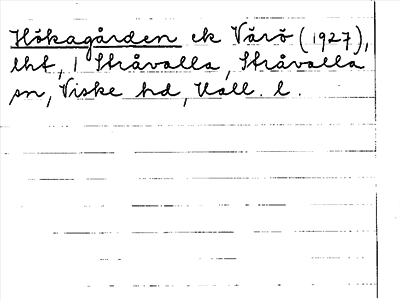 Hökagården ek Värö (1927),
lht, 1 Stråvalla, Stråvalla
sn, Viske hd, Hall. l.